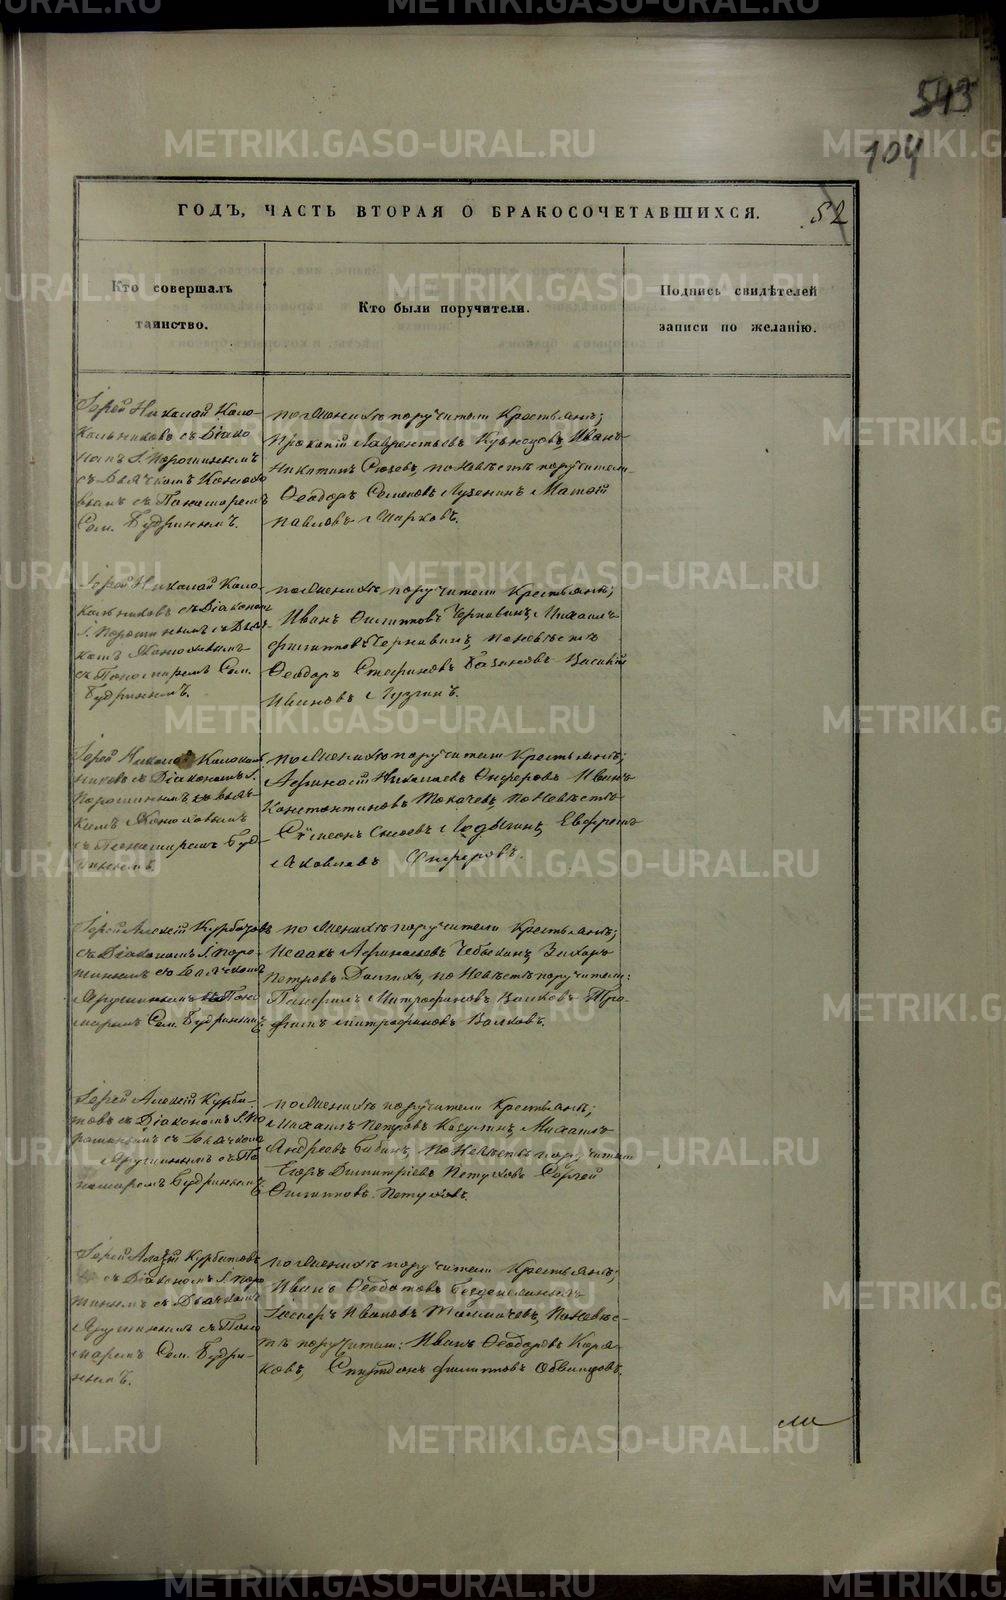 543
104
ГОДЪ, ЧАСТЬ ВТОРАЯ О БРАКОСОЧЕТАВШИХСЯ.
52
Кто совершалъ
таинство.
Кто были поручители.
Подпись свидѣтелей
записи по желанію.
Іерей Николай Коло-
кольниковъ съ Діако
номъ І. Порошинымъ
съ Дьячкомъ
съ Пономаремъ
Сем. Будринымъ.
по Женихѣ поручители Крестьяне;
Прокопій Лаврентьевъ Кузнецовъ, Иванъ
Никитинъ по Невѣстѣ поручители
Ѳеодоръ Семеновъ Лузенинъ Матѳій
Павловъ
Іерей Николай Коло-
кольниковъ съ Діакономъ
І. Порошинымъ съ Дьяч-
комъ
съ Пономаремъ Сем.
Будринымъ.
по Женихѣ поручители Крестьяне;
Иванъ Филипповъ Чернавинъ, Михаилъ
Филипповъ Чернавинъ, по Невѣстѣ
Ѳеодоръ Стефановъ Василій
Ивановъ Лузгинъ.
Іерей Николай Колоколь
никовъ съ Діакономъ І.
Порошинымъ съ Дьяч-
комъ
съ Пономаремъ Буд-
ринымъ.
по Женихѣ поручители Крестьяне;
Аѳанасій Николаевъ Иванъ
Константиновъ Токачевъ, по Невѣстѣ
Сѵмеонъ Лодыгинъ, Евфремъ
Яковлевъ
Іерей Алексій Курбатовъ
съ Діакономъ І. Поро-
шинымъ съ Дьячкомъ
Ярушинымъ съ Поно
маремъ Сем. Будринымъ
по Женихѣ поручители Крестьяне;
Исаакъ Аѳанасьевъ Чебыкинъ, Захаръ
Петровъ Долгихъ, по Невѣстѣ поручители:
Панфилъ Митрофановъ Волковъ Тро-
фимъ Митрофановъ Волковъ.
Іерей Алексій Курба-
товъ съ Діакономъ І. По
рошинымъ съ Дьячкомъ
Ярушинымъ съ По
номаремъ Будринымъ
по Женихѣ поручители Крестьяне;
Михаилъ Петровъ Казулинъ, Михаилъ
Андреевъ Бабинъ, по Невѣстѣ поручители
Егоръ Димитріевъ Петуховъ Сергей
Филипповъ Петуховъ.
Іерей Алексій Курбатовъ
съ Діакономъ І. Поро
шинымъ съ Дьячкомъ
Ярушинымъ съ Поно
маремъ Сем. Будри-
нымъ.
по Женихѣ поручители Крестьяне;
Иванъ Ѳедотовъ
Ивановъ Толмачевъ, по Невѣс-
тѣ поручители: Иванъ Ѳеодоровъ
Спиридонъ Филипповъ
METRIKI.GASO-URAL.RU